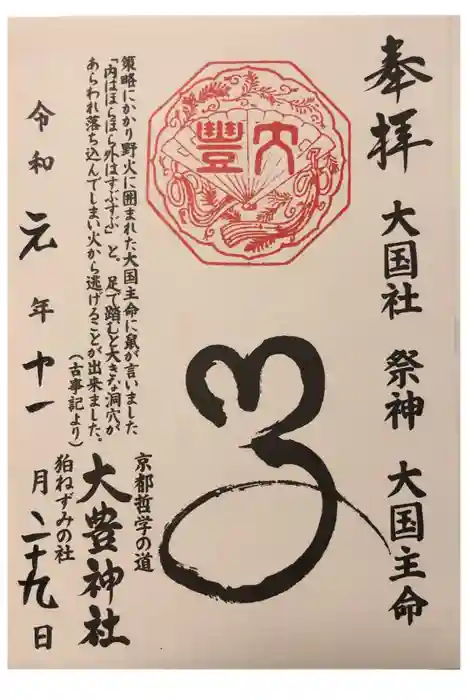 奉拝
大国社 祭神 大国主命
大豊
策略にかかり野火に囲まれた大国主命に鼠が言いました
「内はほらほら外はすぶすぶ」と。足で踏むと大きな洞穴が
あらわれ落ち込んでしまい火から逃げることが出来ました。
(古事記より)
京都哲学の道
大豊神社
狛ねずみの社
令和元年十一月二十九日